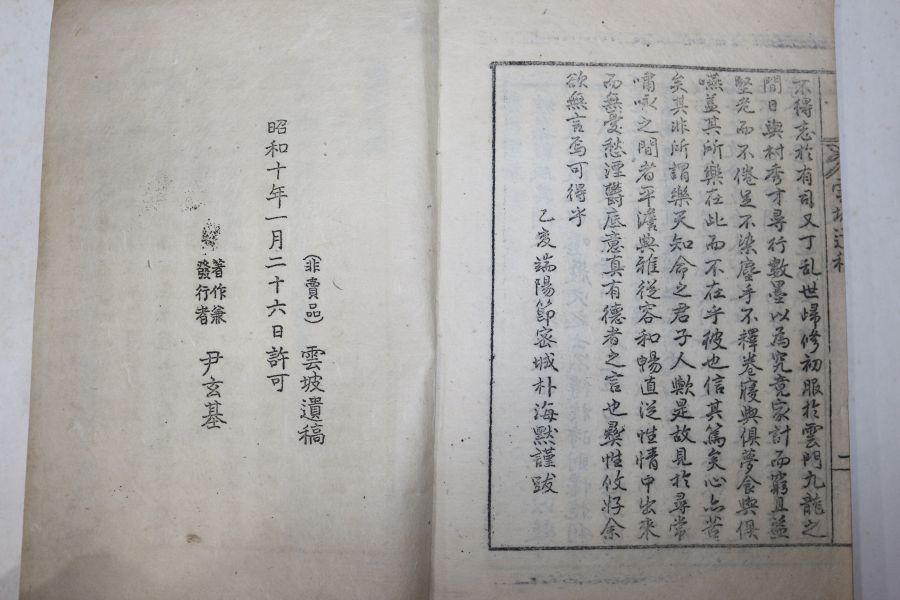 不得志於有司又丁乱世歸修初服於雲門九龍之
間日與村秀才尋行數墨以為究竟家計而窮且益
堅老而不倦足不染塵手不釋卷寢與俱夢食與俱
嚥盖其所樂在此而不在乎彼也信其篤矣心亦苦
矣其非所謂樂天知命之君子人歟是故見於尋常
嘯咏之間者平澹典雅從容和暢直從性情中出來
而無憂愁湮欝底意真有德者之言也彜性攸好余
欲無言焉可得乎
乙亥端陽節密城朴海默謹跋
雲坡遺稿
(非賣品) 雲坡遺稿
昭和十年一月二十六日許可
著作兼
發行者
尹玄基